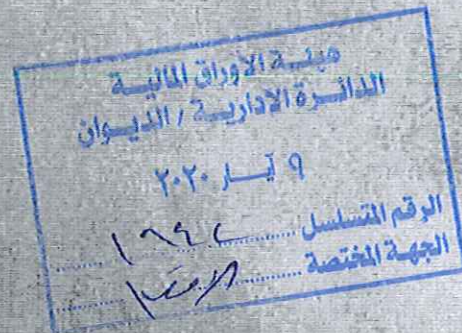 هيئة الأوراق المالية
الدائرة الادارية / الديوان
٩ آيار ٢٠٢٠
الرقم المتسلسل ١٩٤٢
الجهة المختصة